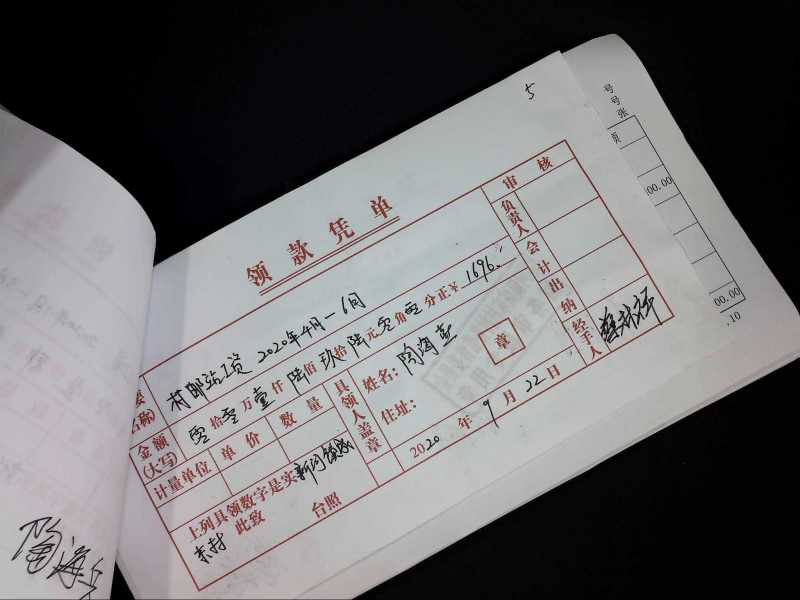 5
领款凭单
村邮站工资 2020年4月-6月
名称)
金额
(大写)
零拾零万壹仟陆佰玖拾陆元零角零分正￥1696.
计量单位 单价 数量
具领人盖章
姓名:
住址:
章
上列具领数字是实
此致
台照
2020年9月22日
审核
负责人
会计
出纳
经手人
号
号
张
00.00
00.00
.10